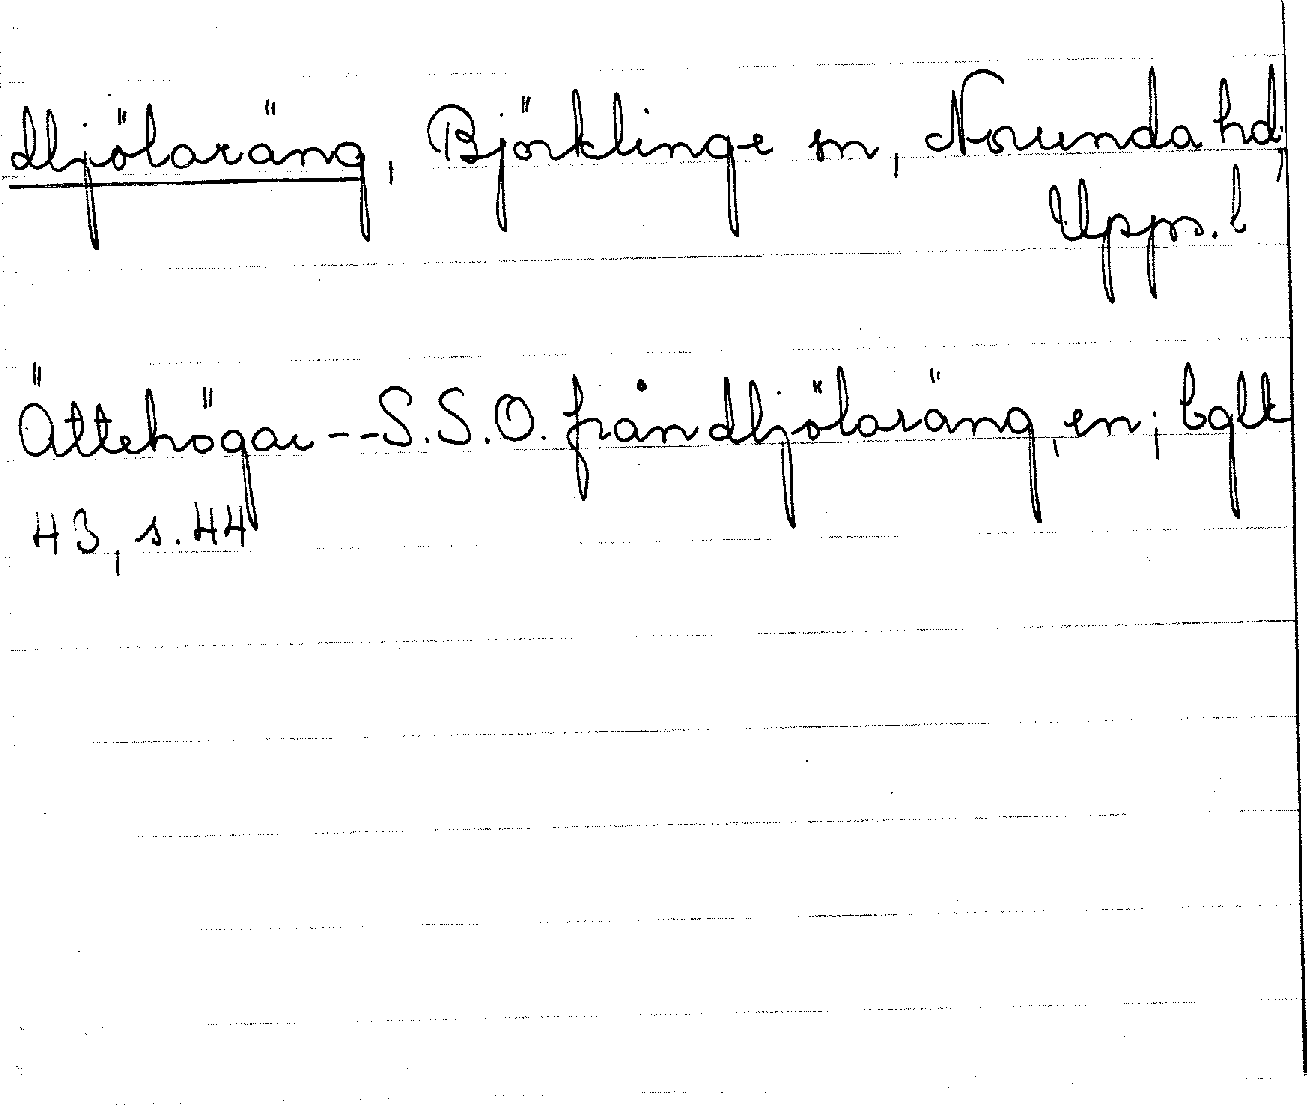 Mjölaräng, Björklinge sn, Norunda hd,
Upps. l
Ättehögar -- S.S.O. från Mjölaräng, en; bglk
43, s. 44